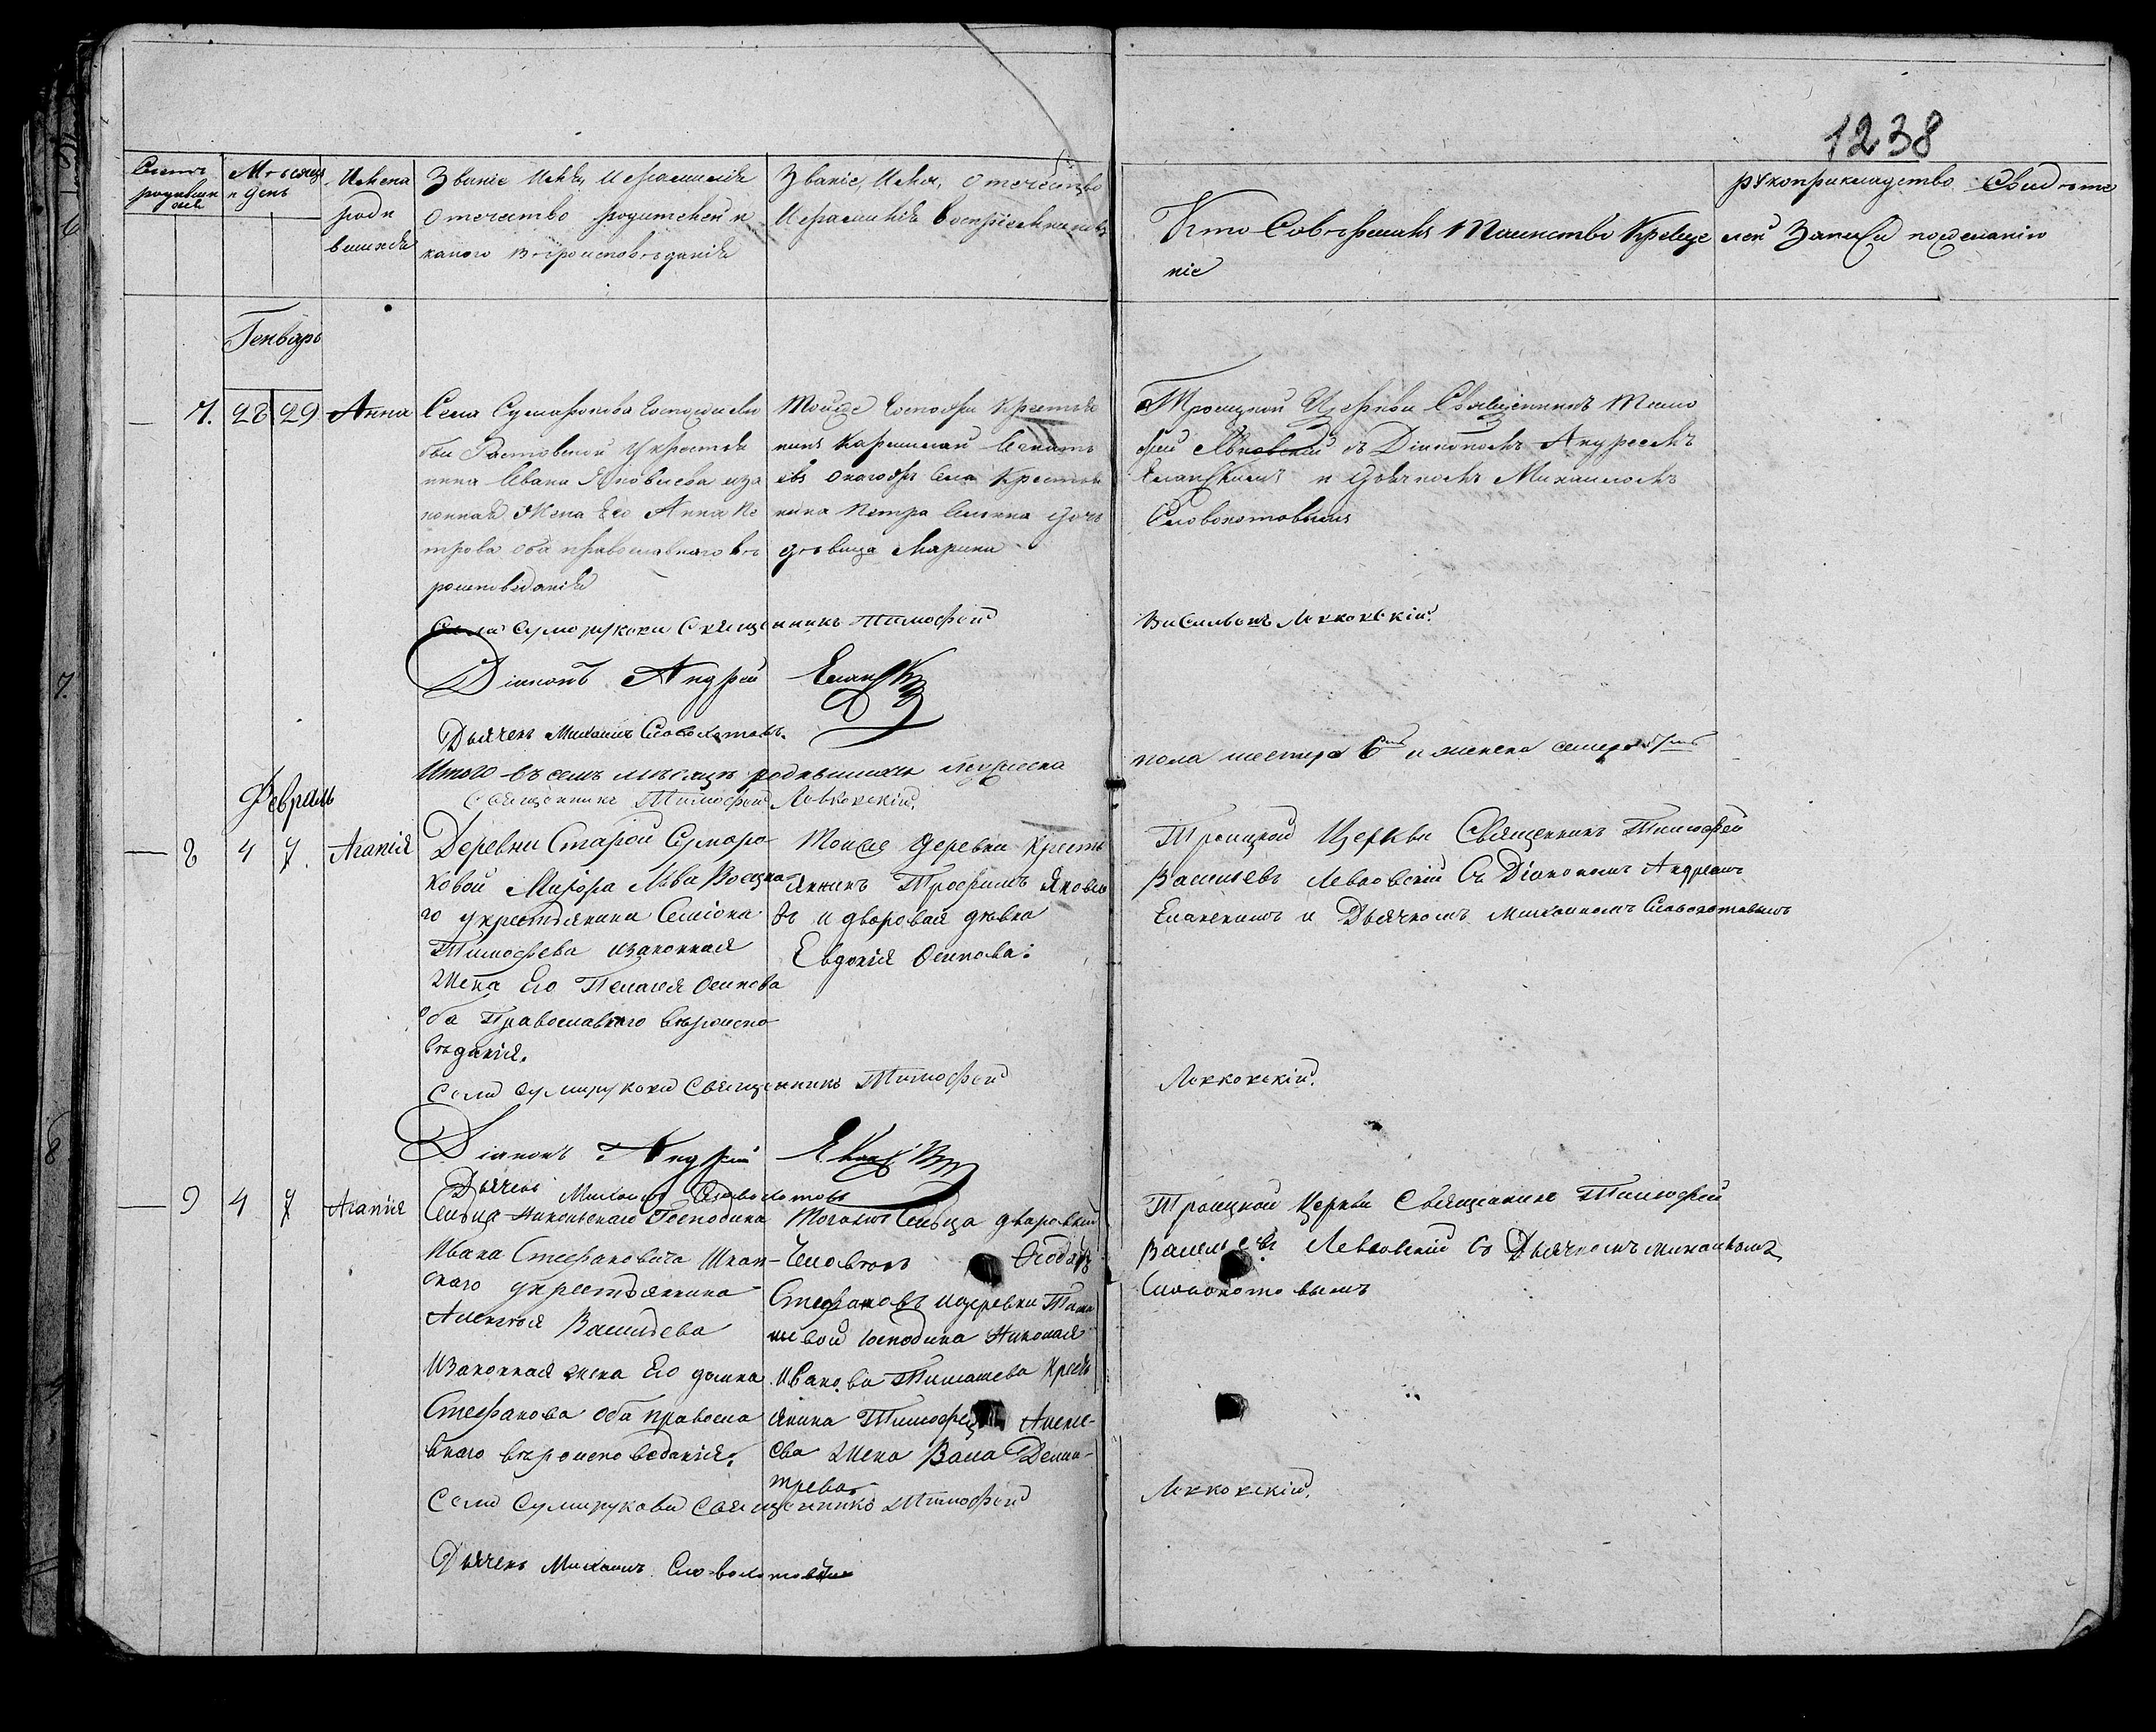 1238
Счетъ родившихся
Мѣсяцъ и день
Имена родившихся
Званіе Имя, и фамилія
Отечество родителей и
какого вѣроисповѣданія
Званіе, Имя, Отечество
и фамилія воспріемниковъ
Кто Совершалъ Таинство Крещеніе
рукоприкладство Свидѣтелей Записи по желанію
Генварь
7. 28 29 Анна
Села Сумарокова Госпожи
Ростовской Крестья
нина Ивана Яковлева иза
конная Жена Его Анна Пе
трова оба православнаго вѣ
роисповѣданія
Тойже Госпожи Крестья
нинъ
евъ онагожъ Села Крестья
нина Петра дочь
дѣвица Марина
Троицкой Церкви Священникъ Тимо
фей съ Діакономъ Андреемъ
Еланскимъ и дьячкомъ Михаиломъ
Словохотовымъ
Села Сумарукова Священникъ Тимофей
Васильевъ Левковскій.
Діаконъ Андрей Еланскій
Дьячекъ Михаилъ Словохотовъ.
Итого въ семъ мѣсяцѣ родившихся мужеска
пола шестеро 6 и женска семеро
Священникъ Тимофей Левковскій.
Февраль
8 4 7. Агапія
Деревни Старой Сумаро
ковой Маіора Льва
го крестьянина Семіона
Тимофеева изаконная
Жена Его Пелагея Осипова
оба Православнаго вѣроиспо
вѣданія.
Тойже деревни Кресть
янинъ Трофимъ Яковле
въ и дворовая дѣвка
Евдокія Осипова.
Троицкой Церкви Священникъ Тимофей
Васильевъ Левковскій Съ Діакономъ Андреемъ
Еланскимъ и Дьячкомъ Михаиломъ Словохотовымъ
Села Сумарукова Священникъ Тимофей
Левковскій.
Діаконъ Андрей Еланскій
Дьячекъ Михаилъ Словохотовъ
9 4 7 Агапія
Сельца Никольскаго Господина
Ивана Стефановича
скаго крестьянина
Алексея Васильева
Изаконная жена Его домна
Стефанова Оба правосла
внаго вѣроисповеданія.
Тогожъ Сельца дворовый
Человекъ Федоръ
Стефановъ идеревни Тима
шевой господина Николая
Иванова Тимашева Крестья
янина Тимофея Алексе-
ева Жена Васа Деми-
трева
Троицкой Церкви Священникъ Тимофей
Васильевъ Левковскій Съ Дьячкомъ михаиломъ
Словохотовымъ
Села Сумарукова Священникъ Тимофей
Левковскій.
Дьячекъ Михаилъ Словохотовъ